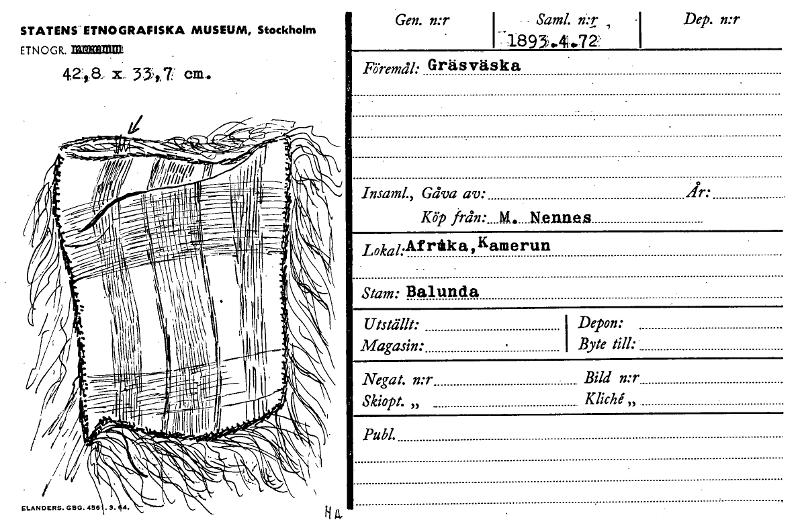 STATENS ETNOGRAFISKA MUSEUM, Stockholm
ETNOGR.
42,8 x 33,7 cm.
ELANDERS. GBG. 4561. 9. 64.
HA
Gen. n:r Saml. n:r Dep. n:r
1893.4.72
Föremål: Gräsväska
Insaml., Gåva av: År:
Köp från: M. Nennes
Lokal: Afrika, Kamerun
Stam: Balunda
Utställt: Depon:
Magasin: Byte till:
Negat. n:r Bild n:r
Skiopt. „ Kliché „
Publ.